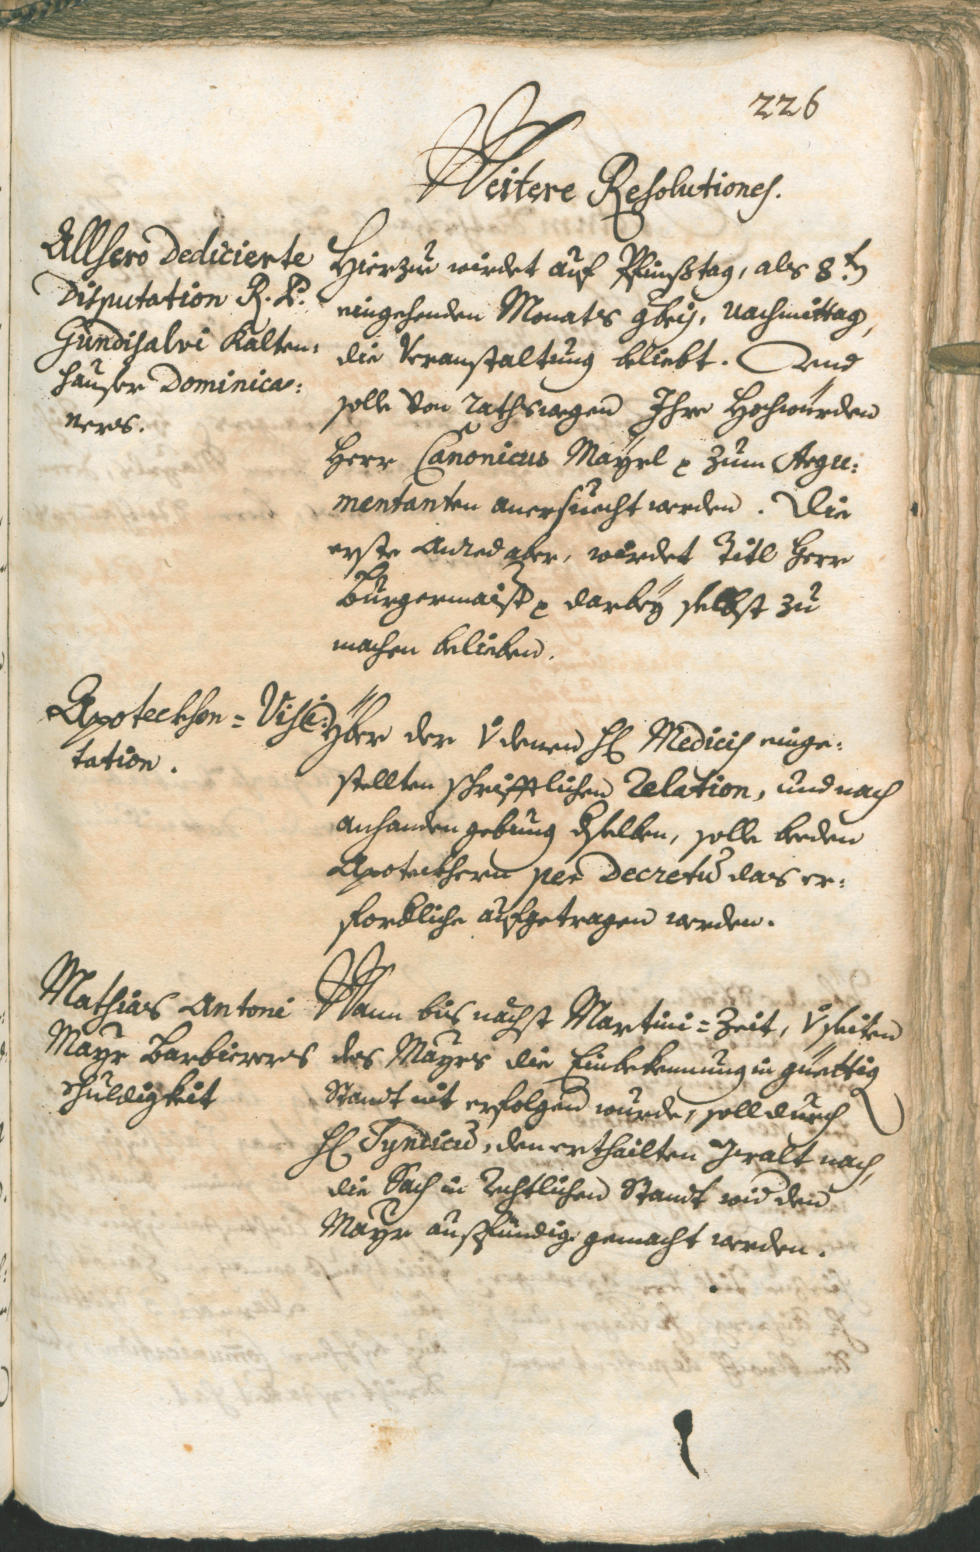 226
Weitere Resolutiones.
Allhero Dedicierte
Disputation R. P.
Gundisalvi Kalten:
hauser Dominica:
ners.
Hierzue wirdet auf Pfinztag, als 8.tn
eingehenden Monats 9bris, nachmittag,
die Veranstaltung beliebt. Und
solle von rathswegen Ihre Hochwürden
Herr Canonicus Mayrl p zum Argu:
mentanten anersuecht werden. Die
erste Anred aber, wirdet Titl Herr
Burgermaistr p darbey selbst zu
machen belieben.
Apoteckhen = Visi:
tation.
Yber der v denen H Medicis einge:
stellten schrifftlichen Relation, und nach
anhanden gebung dselben, solle beeden
Apoteckhern per Decretu das er:
forderliche aufgetragen werden.
Mathias Antoni
Mayr Barbierers
schuldigkeit
Wann bis nächst Martini = Zeit, v seiten
des Mayrs die Einbekennung in güettig
Standt nit erfolgen wurde, soll durch
H Syndicu, den ertheilten Gwalt nach,
die Sach in rechtlichen Standt wid den
Mayr ausfündig gemacht werden.